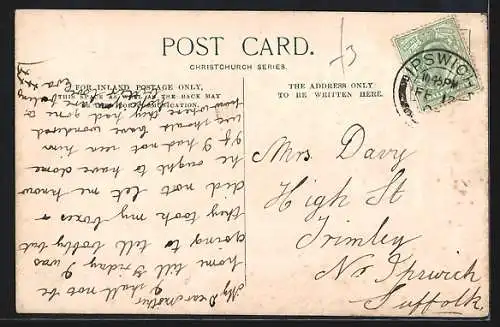 POST CARD.
CHRISTCHURCH SERIES.
FOR INLAND POSTAGE ONLY,
THIS SPACE AS WELL AS THE BACK MAY
BE USED FOR COMMUNICATION.
THE ADDRESS ONLY
TO BE WRITTEN HERE.
IPSWICH
Mrs. Davy
High St
Trimley
Nr Ipswich
Suffolk
My Dear mother
I shall not be
home till Friday I was
going to tell Bobby but
they took my boxes &
did not let me know
he ought to have done
if I had not seen him
we should have wondered
now where they had gone
Eva xx